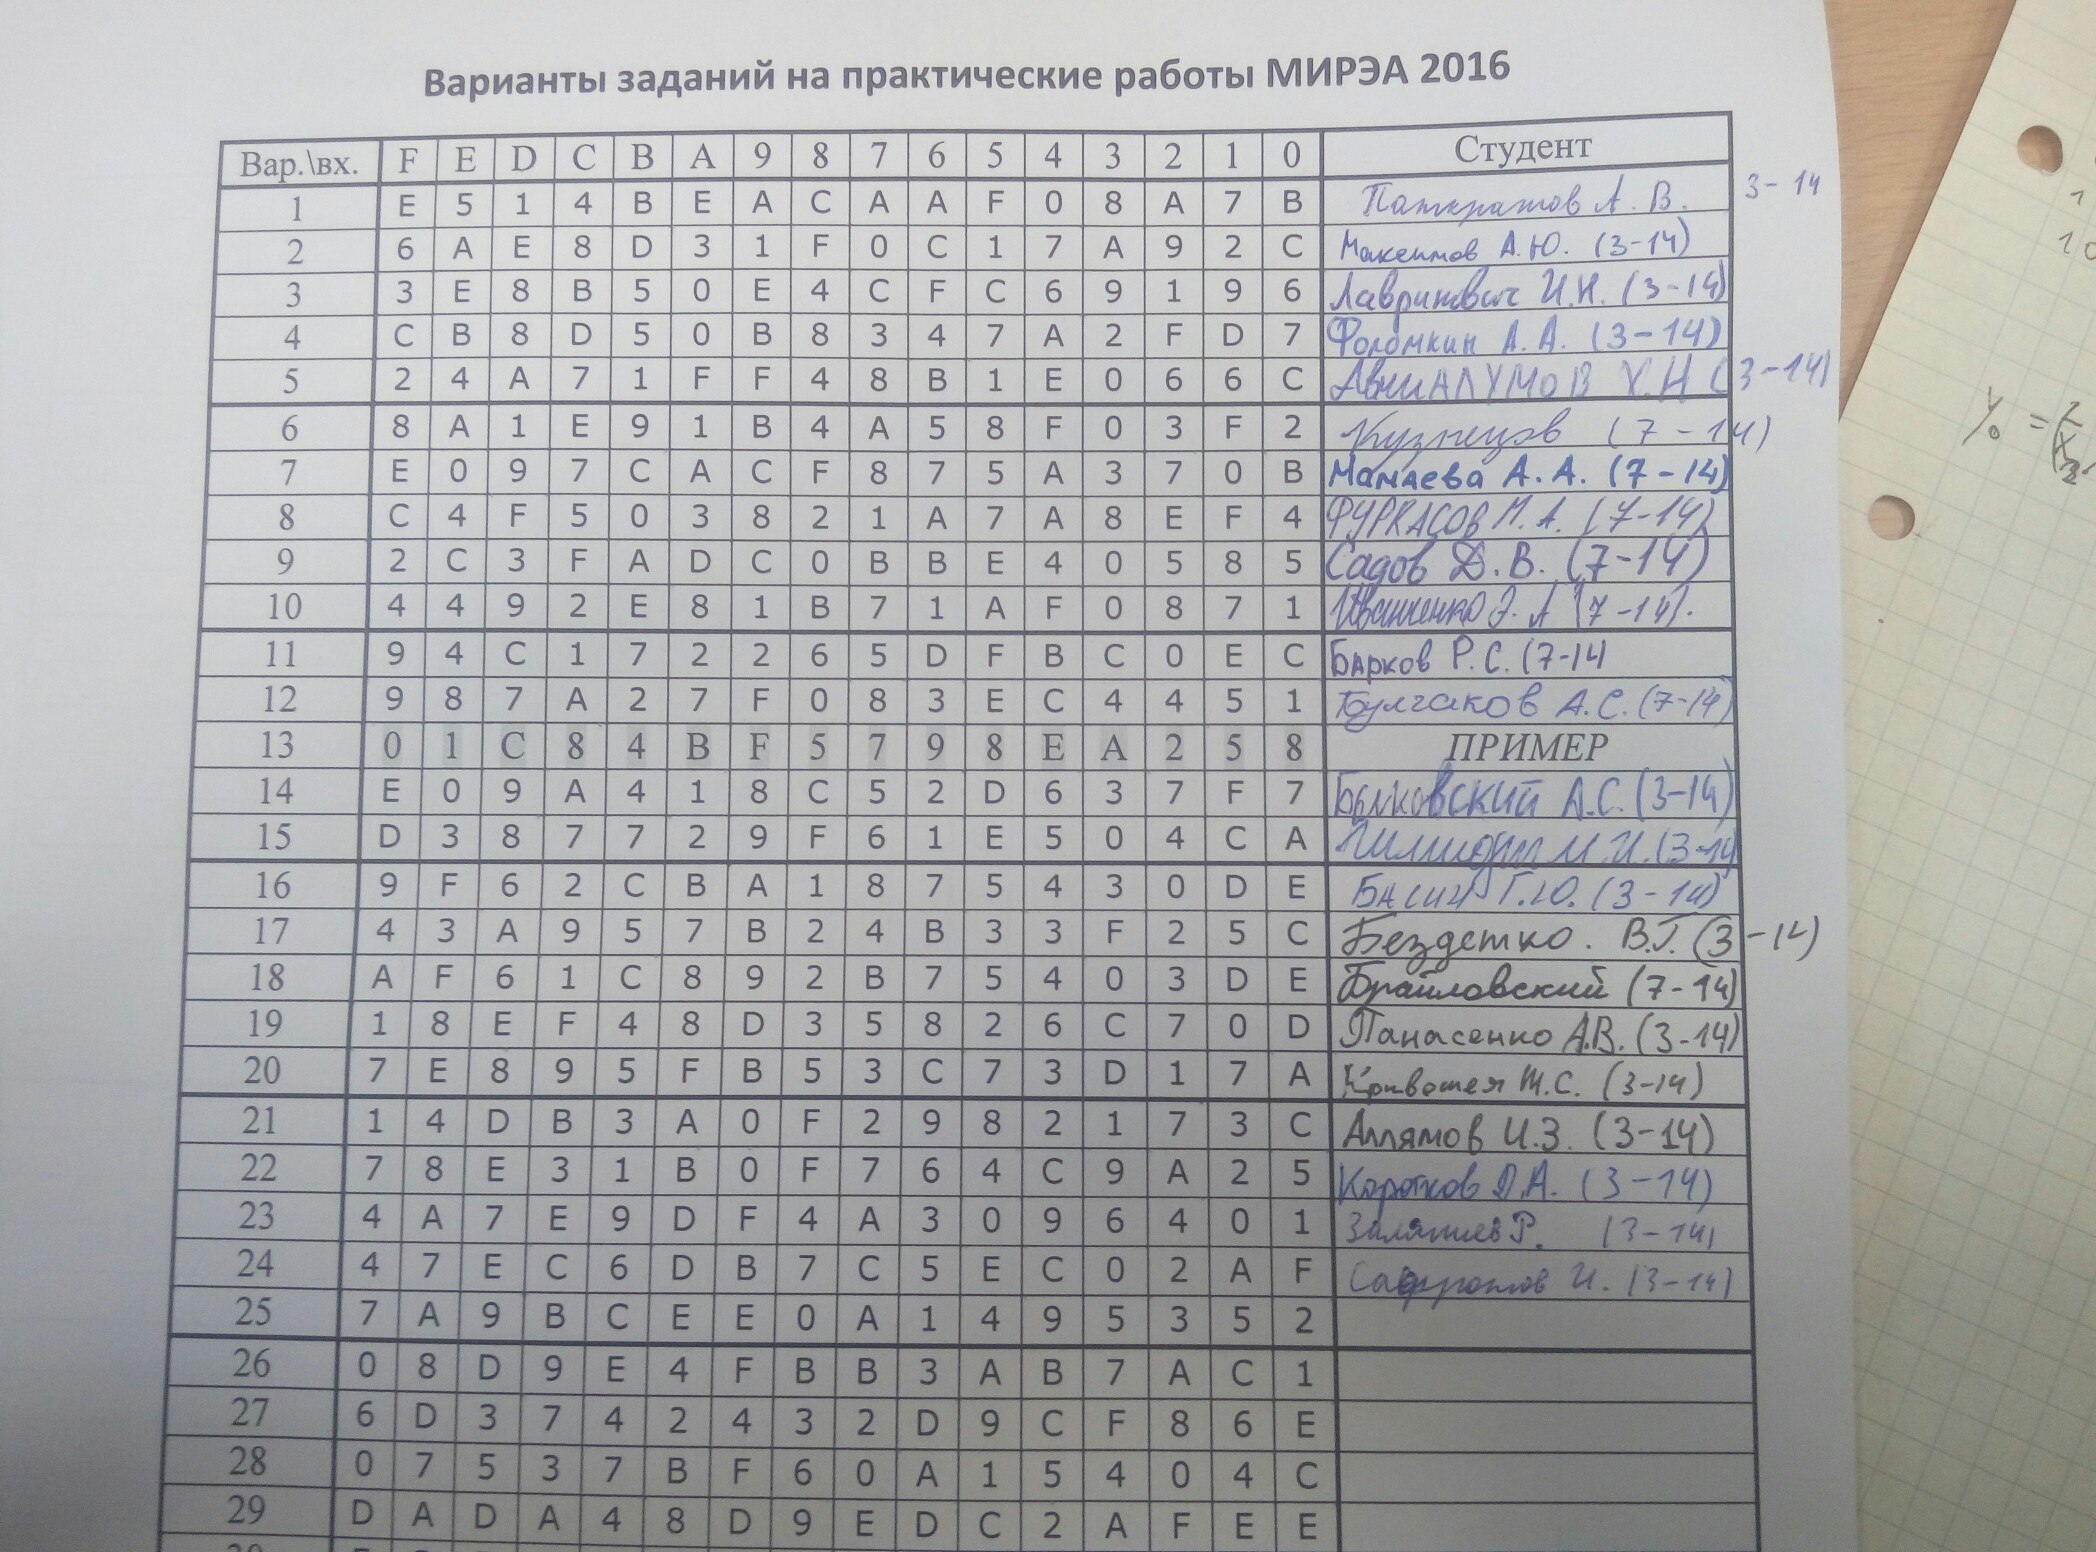 Варианты заданий на практические работы МИРЭА 2016
Вар.\вх. F E D C B A 9 8 7 6 5 4 3 2 1 0 Студент
1 E 5 1 4 B E A C A A F 0 8 A 7 B А. В. 3-14
2 6 A E 8 D 3 1 F 0 C 1 7 A 9 2 C Максимов А.Ю. (3-14)
3 3 E 8 B 5 0 E 4 C F C 6 9 1 9 6 Лавринович И.Н. (3-14)
4 C B 8 D 5 0 B 8 3 4 7 A 2 F D 7 А. А. (3-14)
5 2 4 A 7 1 F F 4 8 B 1 E 0 6 6 C Х.Н (3-14)
6 8 A 1 E 9 1 B 4 A 5 8 F 0 3 F 2 Кузнецов (7-14)
7 E 0 9 7 C A C F 8 7 5 A 3 7 0 B Мамаева А. А. (7-14)
8 C 4 F 5 0 3 8 2 1 A 7 A 8 E F 4 ФУРКАСОВ М. А. (7-14)
9 2 C 3 F A D C 0 B B E 4 0 5 8 5 Садов Д. В. (7-14)
10 4 4 9 2 E 8 1 B 7 1 A F 0 8 7 1 Иваненко Э. А (7-14).
11 9 4 C 1 7 2 2 6 5 D F B C 0 E C Барков Р.С. (7-14
12 9 8 7 A 2 7 F 0 8 3 E C 4 4 5 1 Булгаков А.С. (7-14)
13 0 1 C 8 4 B F 5 7 9 8 E A 2 5 8 ПРИМЕР
14 E 0 9 A 4 1 8 C 5 2 D 6 3 7 F 7 А.С. (3-14)
15 D 3 8 7 7 2 9 F 6 1 E 5 0 4 C A И.И. (3-14
16 9 F 6 2 C B A 1 8 7 5 4 3 0 D E Басин Г.Ю. (3-14)
17 4 3 A 9 5 7 B 2 4 B 3 3 F 2 5 C Бездетко. В.Г. (3-14)
18 A F 6 1 C 8 9 2 B 7 5 4 0 3 D E Браиловский (7-14)
19 1 8 E F 4 8 D 3 5 8 2 6 C 7 0 D Панасенко А.В. (3-14)
20 7 E 8 9 5 F B 5 3 C 7 3 D 1 7 A Кривошея М.С. (3-14)
21 1 4 D B 3 A 0 F 2 9 8 2 1 7 3 C Аллямов И.З. (3-14)
22 7 8 E 3 1 B 0 F 7 6 4 C 9 A 2 5 Коротков Д.А. (3-14)
23 4 A 7 E 9 D F 4 A 3 0 9 6 4 0 1 Р. (3-14)
24 4 7 E C 6 D B 7 C 5 E C 0 2 A F И. (3-14)
25 7 A 9 B C E E 0 A 1 4 9 5 3 5 2
26 0 8 D 9 E 4 F B B 3 A B 7 A C 1
27 6 D 3 7 4 2 4 3 2 D 9 C F 8 6 E
28 0 7 5 3 7 B F 6 0 A 1 5 4 0 4 C
29 D A D A 4 8 D 9 E D C 2 A F E E